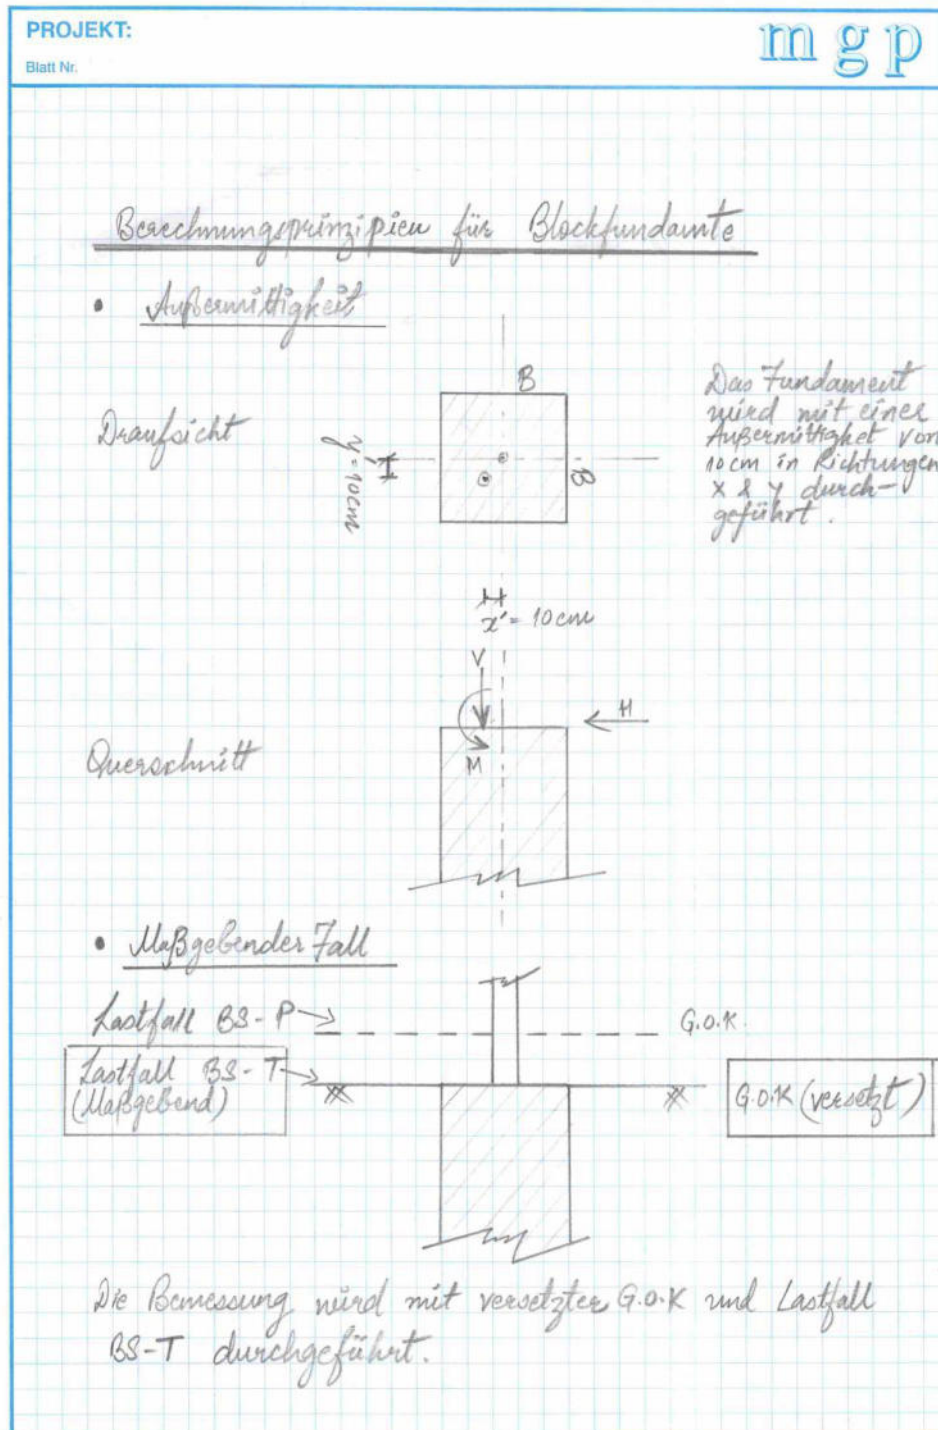 PROJEKT:
mgp
Blatt Nr.
Berechnungsprinzipien für Blockfundamte
• Außermittigkeit
B
Draufsicht
y'=10cm
B
Das Fundament
wird mit einer
Außermittigket von
10cm in Richtungen
X & Y durch-
geführt.
x'=10cm
V
H
M
Querschnitt
• Maßgebender Fall
Lastfall BS-P
G.O.K.
Lastfall BS-T
(Maßgebend)
G.O.K (versetzt)
Die Bemessung wird mit versetzter G.O.K und Lastfall
BS-T durchgeführt.